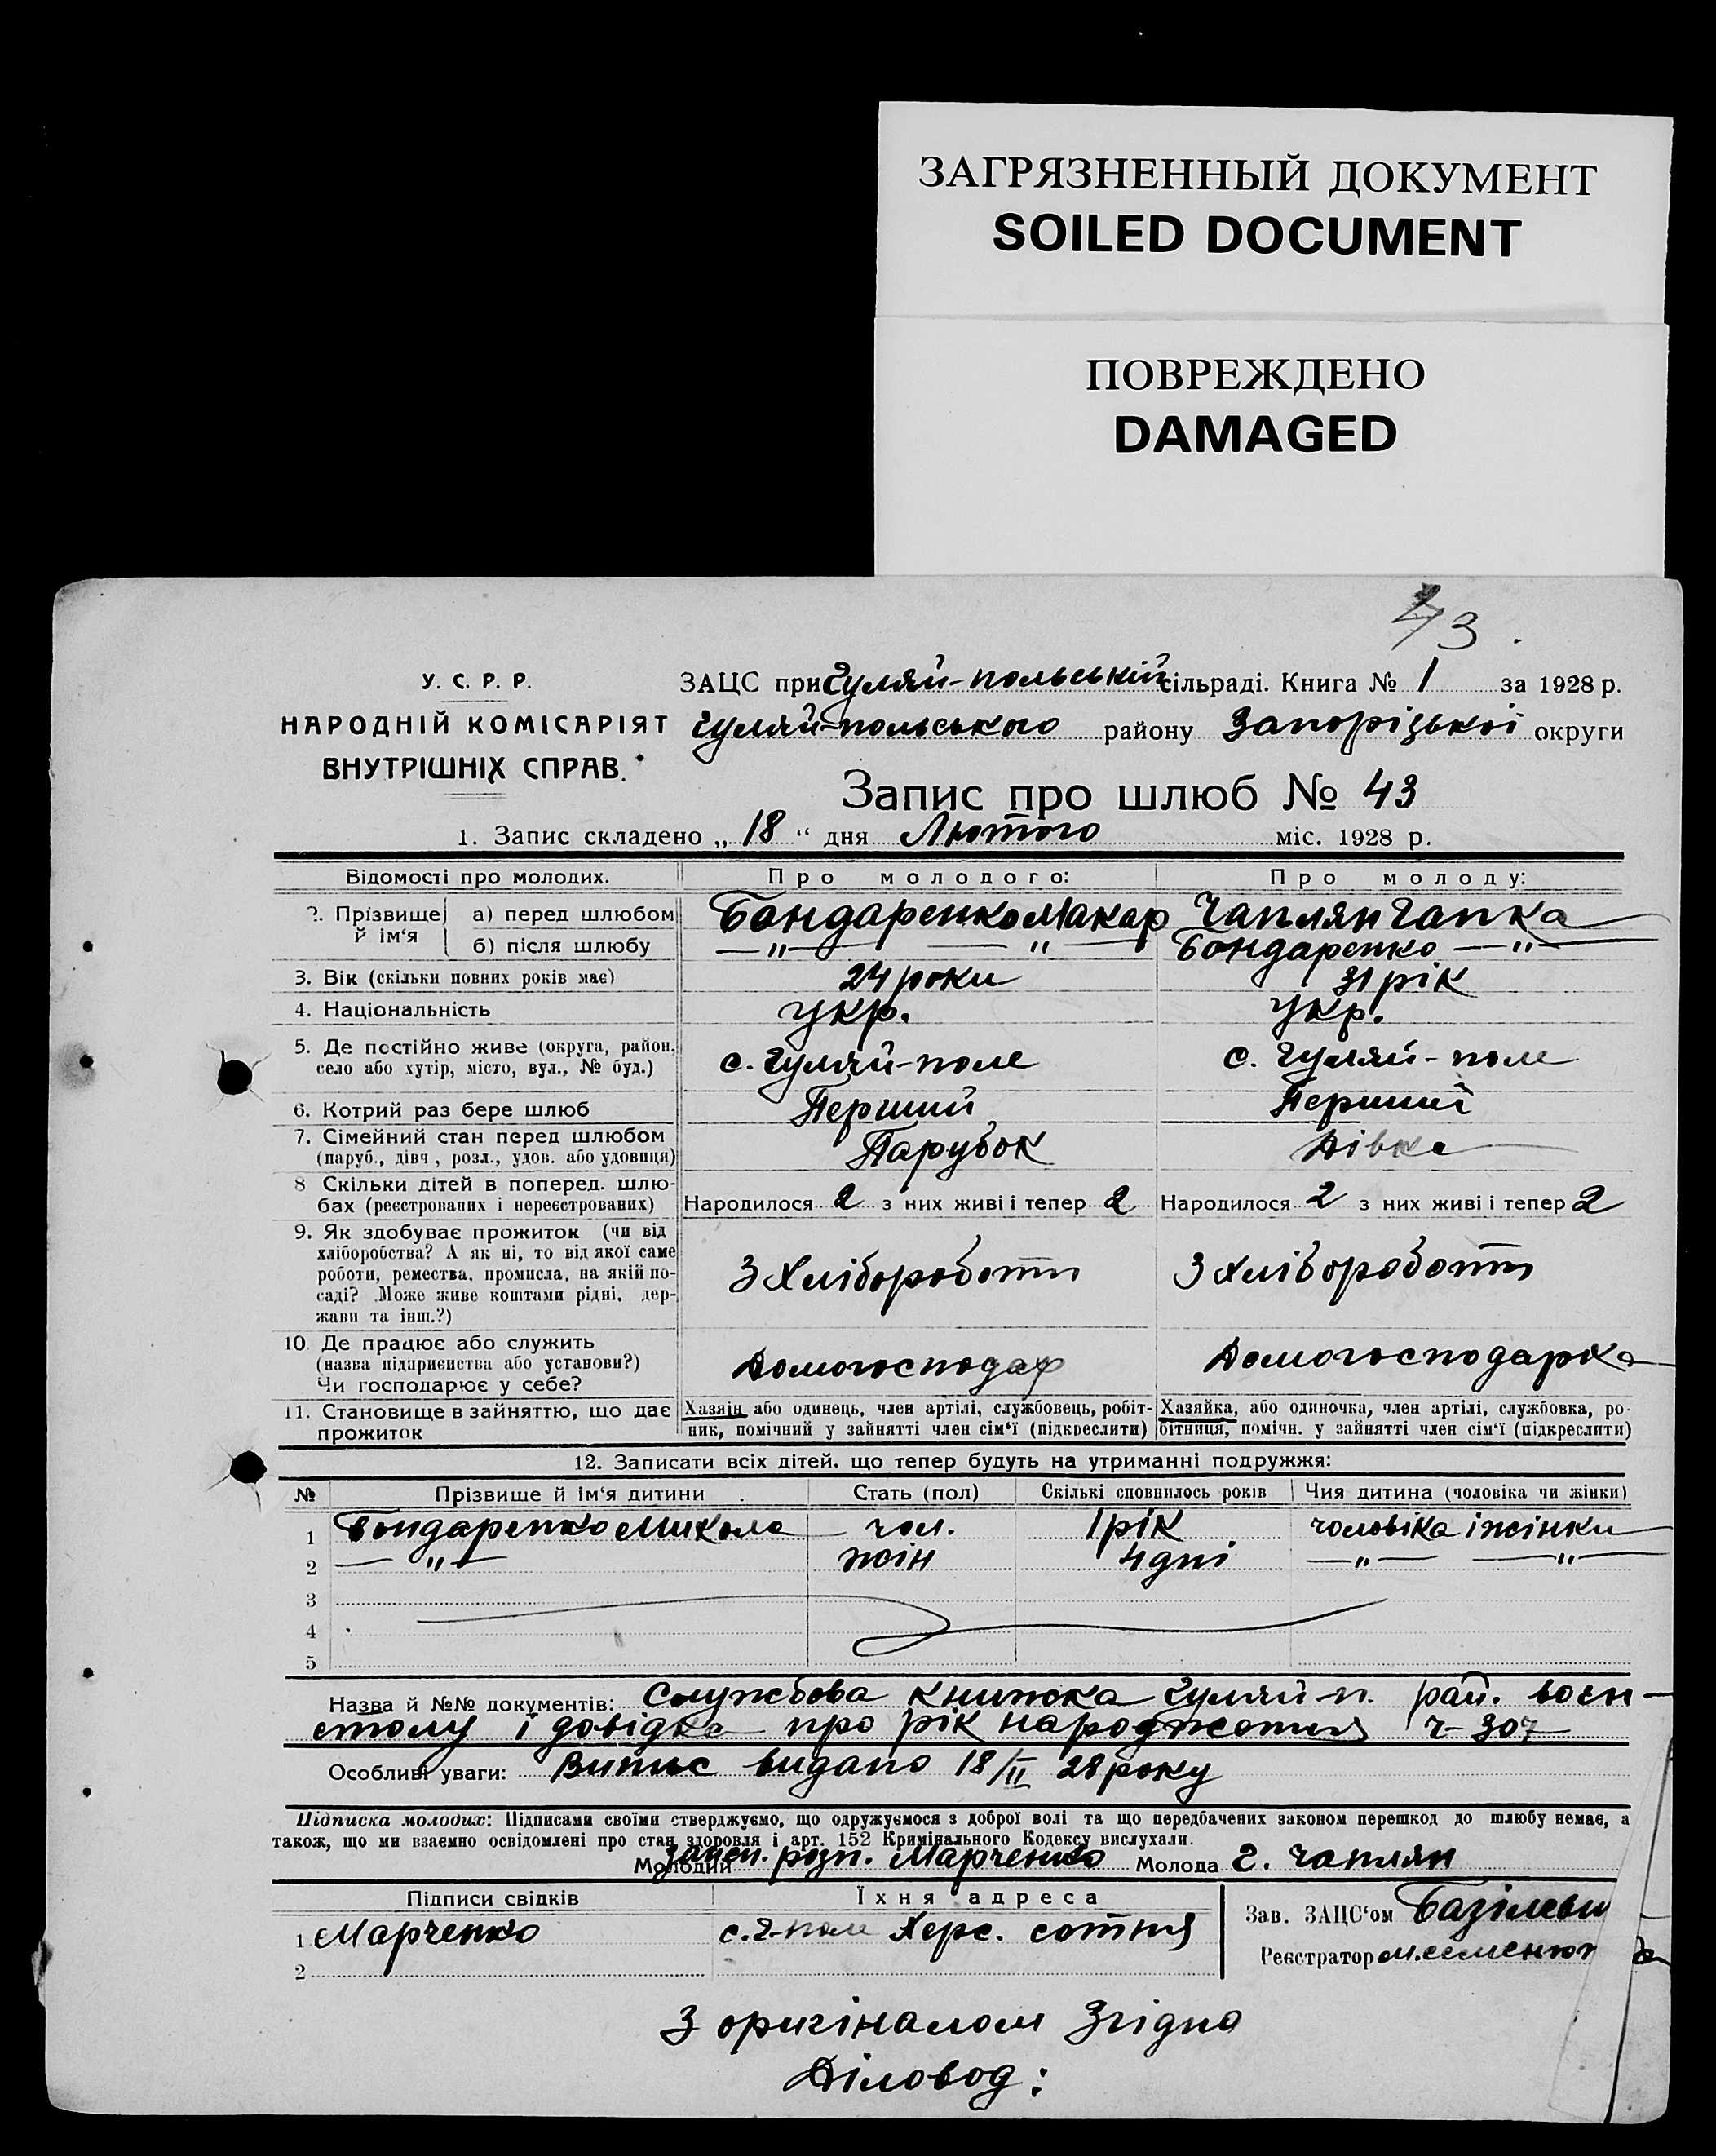 ЗАГРЯЗНЕННЫЙ ДОКУМЕНТ
SOILED DOCUMENT
ПОВРЕЖДЕНО
DAMAGED
43.
У. С. Р. Р.
НАРОДНІЙ КОМІСАРІЯТ
ВНУТРІШНІХ СПРАВ.
ЗАЦС при Гуляй-польській сільраді. Книга № 1 за 1928 р.
Гуляй-польського району Запоріцької округи
Запис про шлюб № 43
1. Запис складено „ 18 “ дня Лютого міс. 1928 р.
Відомості про молодих. Про молодого: Про молоду:
2. Прізвище й ім‘я а) перед шлюбом Бондаренко Макар Чаплян Гапка
б) після шлюбу — „ — — „ — Бондаренко — „ —
3. Вік (скільки повних років має) 24 роки 31 рік
4. Національність Укр. Укр.
5. Де постійно живе (округа, район, село або хутір, місто, вул., № буд.) с. Гуляй-поле с. Гуляй-поле
6. Котрий раз бере шлюб Перший Перший
7. Сімейний стан перед шлюбом (паруб., дівч., розл., удов. або удовиця) Парубок Дівка
8 Скільки дітей в поперед. шлюбах (реєстрованих і нереєстрованих) Народилося 2 з них живі і тепер 2 Народилося 2 з них живі і тепер 2
9. Як здобуває прожиток (чи від хліборобства? А як ні, то від якої саме роботи, ремества, промисла, на якій посаді? Може живе коштами рідні, держави та інш.?) З Хлібороботи З Хлібороботи
10. Де працює або служить (назва підприєнства або установи?) Чи господарює у себе? Домогосподар Домогосподарка
11. Становище в зайняттю, що дає прожиток Хазяїн або одинець, член артілі, службовець, робітник, помічний у зайнятті член сім‘ї (підкреслити) Хазяйка, або одиночка, член артілі, службовка, робітниця, помічн. у зайнятті член сім‘ї (підкреслити)
12. Записати всіх дітей, що тепер будуть на утриманні подружжя:
№ Прізвище й ім‘я дитини Стать (пол) Скількі сповнилось років Чия дитина (чоловіка чи жінки)
1 Бондаренко Микола чол. 1 рік чоловіка і жінки
2 — „ — жін 4 дні — „ — — „ —
3
4
5
Назва й №№ документів: Службова книжка Гуляй-п. рай. воєн-
столу і довідка про рік народження ч- 307
Особливі уваги: Витис видано 18/II 28 року
Підписка молодих: Підписами своїми стверджуємо, що одружуємося з доброї волі та що передбачених законом перешкод до шлюбу немає, а
також, що ми взаємно освідомлені про стан здоровля і арт. 152 Кримінального Кодексу вислухали.
Молодий розп. Марченко Молода Г. Чаплян
Підписи свідків Їхня адреса
1 Марченко с. Г-поле Херс. сотня
2
Зав. ЗАЦС‘ом Базілеви
Реєстратор М. Семенют
З оригіналом Згідна
Діловод: